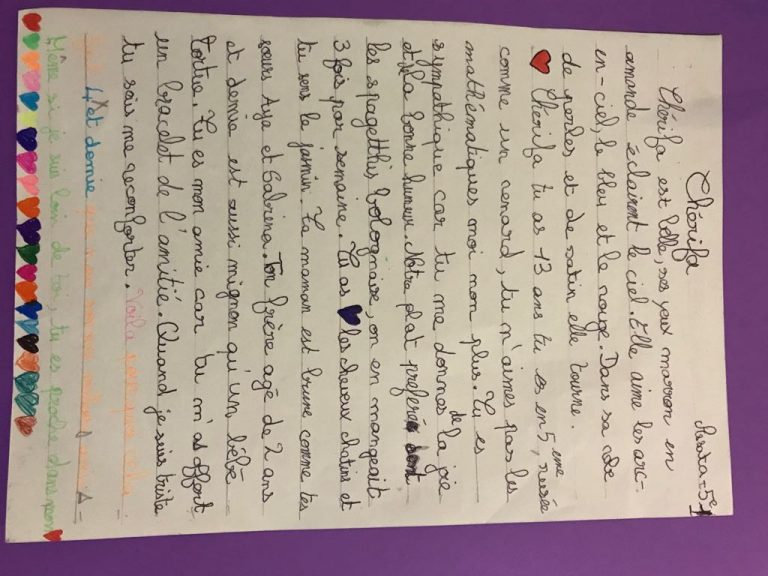 Assata 5e1
Chérifa
Chérifa est belle, ses yeux marron en
amande éclairent le ciel. Elle aime les arc-
en-ciel, le bleu et le rouge. Dans sa robe
de perles et de satin elle tourne.
Chérifa tu as 13 ans tu es en 5eme, rusée
comme un renard, tu n'aimes pas les
mathématiques moi non plus. Tu es
sympathique car tu me donnes de la joie
et de la bonne humeur. Notre plat preferé sont
les spagetthis bolognaise, on en mangeait
3 fois par semaine. Tu as les cheveux chatins et
tu sens le jasmin. Ta maman est brune comme tes
sœurs Aya et Sabrina. Ton frère agé de 2 ans
et demie est aussi mignon qu'un bébé
tortue. Tu es mon amie car tu m'as offert
un bracelet de l'amitié. Quand je suis triste
tu sais me reconforter. Voilà pourquoi cela
fait 4 et demie que nous sommes amies
Même si je suis loin de toi, tu es proche dans mon